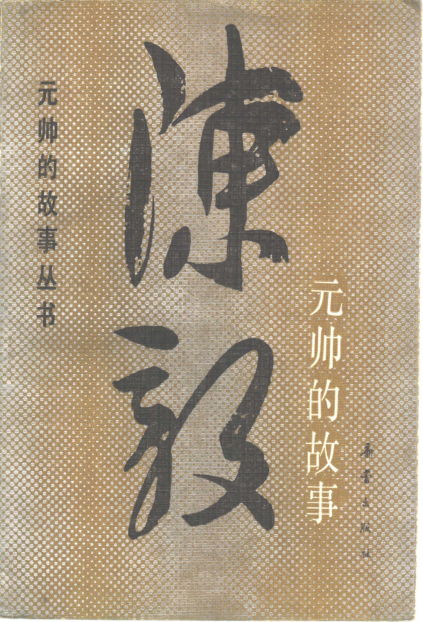 元帅的故事丛书
陈毅
元帅的故事
新蕾出版社